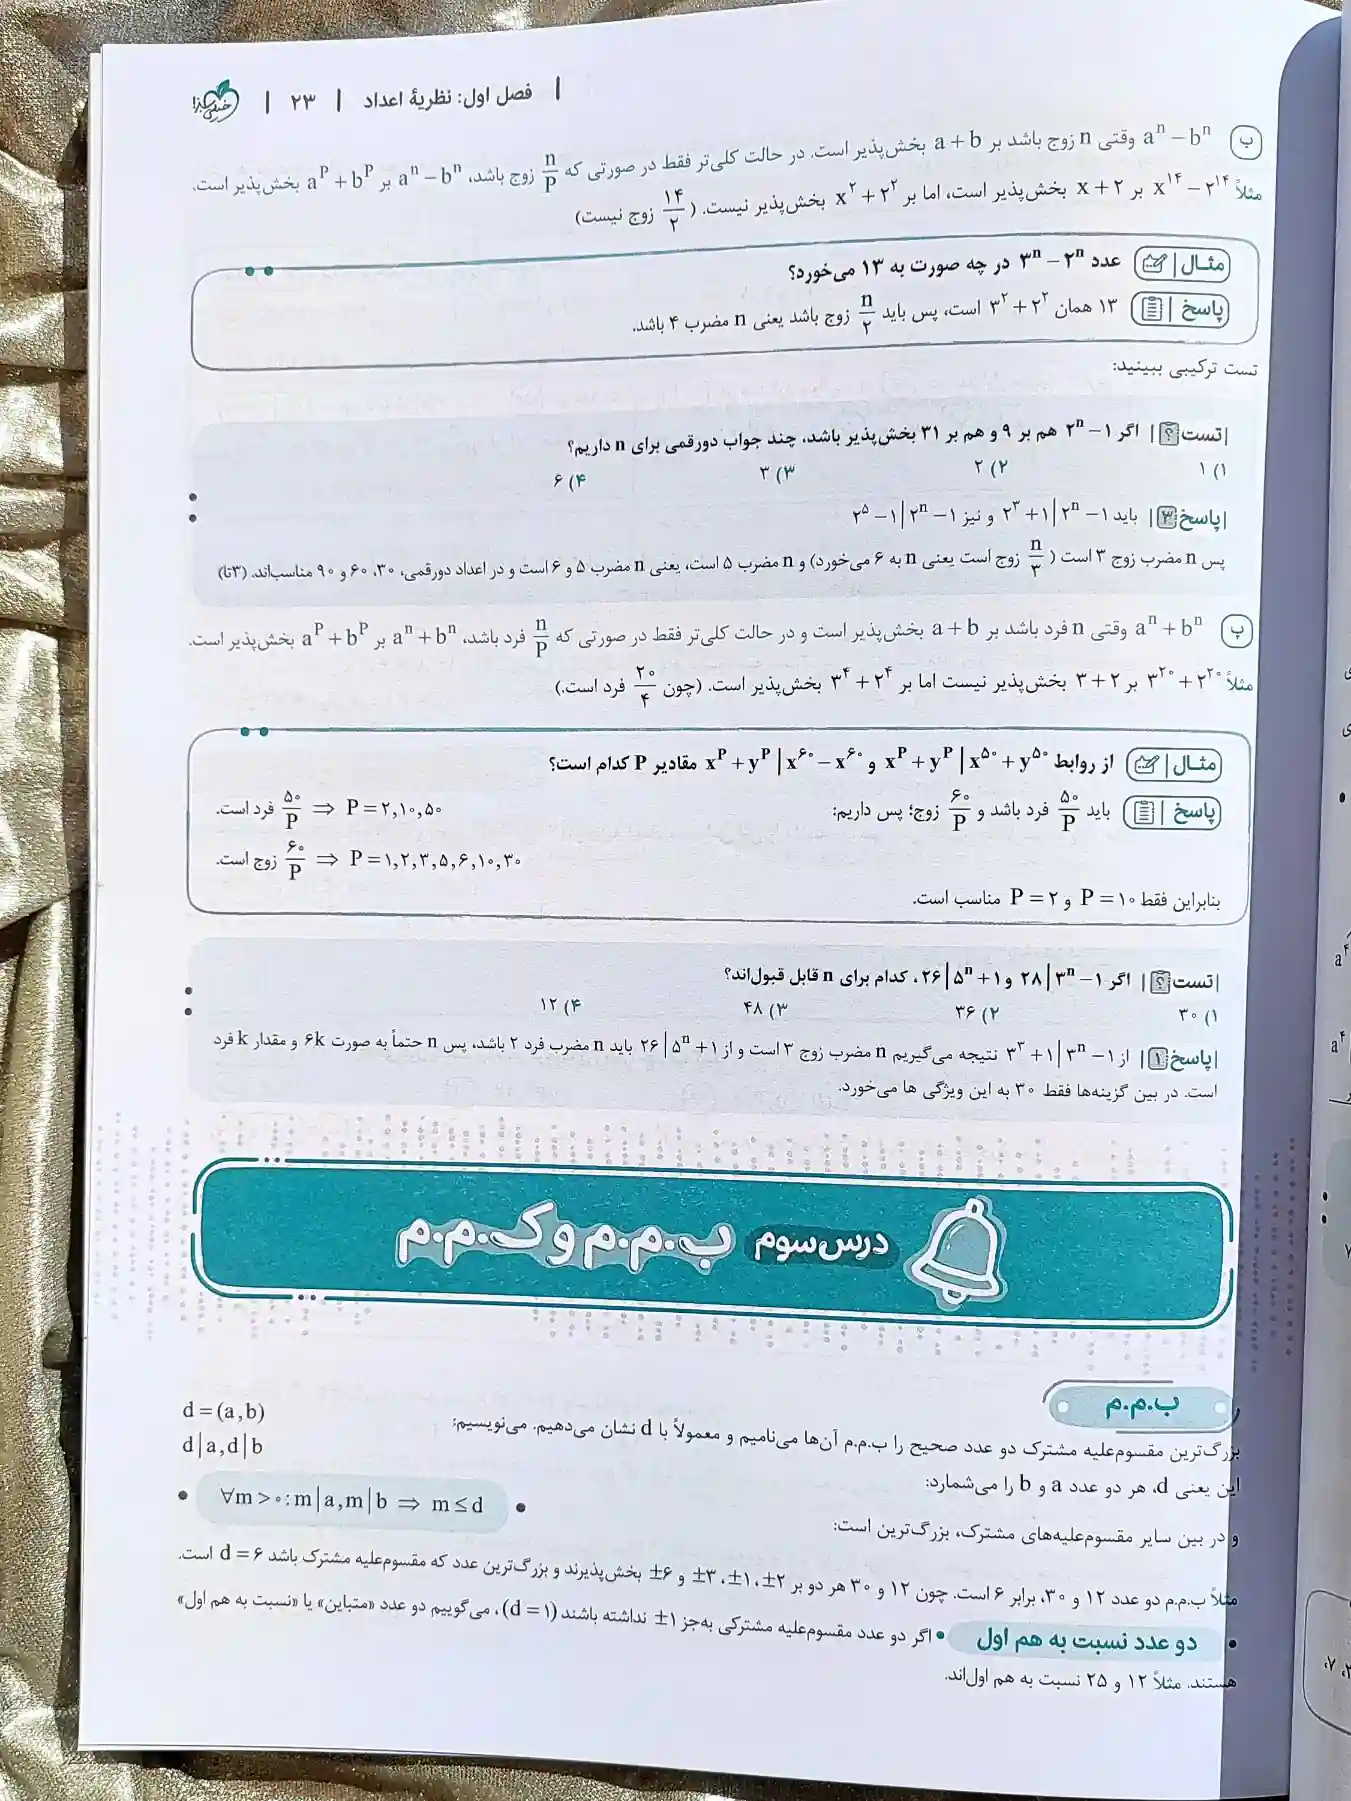 | فصل اول: نظریهٔ اعداد | ۲۳ | خیلی سبز
ب aⁿ − bⁿ وقتی n زوج باشد بر a + b بخش‌پذیر است. در حالت کلی‌تر فقط در صورتی که n/P زوج باشد، aⁿ − bⁿ بر aᴾ + bᴾ بخش‌پذیر است.
مثلاً x¹⁴ − ۲¹⁴ بر x + ۲ بخش‌پذیر است، اما بر x² + ۲² بخش‌پذیر نیست. (۱۴/۲ زوج نیست)
مثال | عدد ۳ⁿ − ۲ⁿ در چه صورت به ۱۳ می‌خورد؟
پاسخ | ۱۳ همان ۳² + ۲² است، پس باید n/۲ زوج باشد یعنی n مضرب ۴ باشد.
تست ترکیبی ببینید:
|تست ؟| اگر ۲ⁿ − ۱ هم بر ۹ و هم بر ۳۱ بخش‌پذیر باشد، چند جواب دورقمی برای n داریم؟
۱) ۱ ۲) ۲ ۳) ۳ ۴) ۶
|پاسخ ۳| باید ۲³ + ۱ | ۲ⁿ − ۱ و نیز ۲⁵ − ۱ | ۲ⁿ − ۱
پس n مضرب زوج ۳ است (n/۳ زوج است یعنی n به ۶ می‌خورد) و n مضرب ۵ است، یعنی n مضرب ۵ و ۶ است و در اعداد دورقمی، ۳۰، ۶۰ و ۹۰ مناسب‌اند. (۳تا)
پ aⁿ + bⁿ وقتی n فرد باشد بر a + b بخش‌پذیر است و در حالت کلی‌تر فقط در صورتی که n/P فرد باشد، aⁿ + bⁿ بر aᴾ + bᴾ بخش‌پذیر است.
مثلاً ۳²⁰ + ۲²⁰ بر ۳ + ۲ بخش‌پذیر نیست اما بر ۳⁴ + ۲⁴ بخش‌پذیر است. (چون ۲۰/۴ فرد است.)
مثال | از روابط xᴾ + yᴾ | x⁵⁰ + y⁵⁰ و xᴾ + yᴾ | x⁶⁰ − x⁶⁰ مقادیر P کدام است؟
پاسخ | باید ۵۰/P فرد باشد و ۶۰/P زوج؛ پس داریم:
۵۰/P فرد است. ⇒ P = ۲, ۱۰, ۵۰
۶۰/P زوج است. ⇒ P = ۱, ۲, ۳, ۵, ۶, ۱۰, ۳۰
بنابراین فقط P = ۱۰ و P = ۲ مناسب است.
|تست ؟| اگر ۲۸ | ۳ⁿ − ۱ و ۲۶ | ۵ⁿ + ۱، کدام برای n قابل قبول‌اند؟
۱) ۳۰ ۲) ۳۶ ۳) ۴۸ ۴) ۱۲
|پاسخ ۱| از ۳³ + ۱ | ۳ⁿ − ۱ نتیجه می‌گیریم n مضرب زوج ۳ است و از ۲۶ | ۵ⁿ + ۱ باید n مضرب فرد ۲ باشد، پس n حتماً به صورت ۶k و مقدار k فرد
است. در بین گزینه‌ها فقط ۳۰ به این ویژگی ها می‌خورد.
درس سوم ب.م.م و ک.م.م
ب.م.م
بزرگ‌ترین مقسوم‌علیه مشترک دو عدد صحیح را ب.م.م آن‌ها می‌نامیم و معمولاً با d نشان می‌دهیم. می‌نویسیم: d = (a, b)
این یعنی d، هر دو عدد a و b را می‌شمارد: d | a, d | b
و در بین سایر مقسوم‌علیه‌های مشترک، بزرگ‌ترین است: ∀m > ۰ : m | a, m | b ⇒ m ≤ d
مثلاً ب.م.م دو عدد ۱۲ و ۳۰، برابر ۶ است. چون ۱۲ و ۳۰ هر دو بر ±۲، ±۱، ±۳ و ±۶ بخش‌پذیرند و بزرگ‌ترین عدد که مقسوم‌علیه مشترک باشد d = ۶ است.
• دو عدد نسبت به هم اول • اگر دو عدد مقسوم‌علیه مشترکی به‌جز ±۱ نداشته باشند (d = ۱)، می‌گوییم دو عدد «متباین» یا «نسبت به هم اول»
هستند. مثلاً ۱۲ و ۲۵ نسبت به هم اول‌اند.